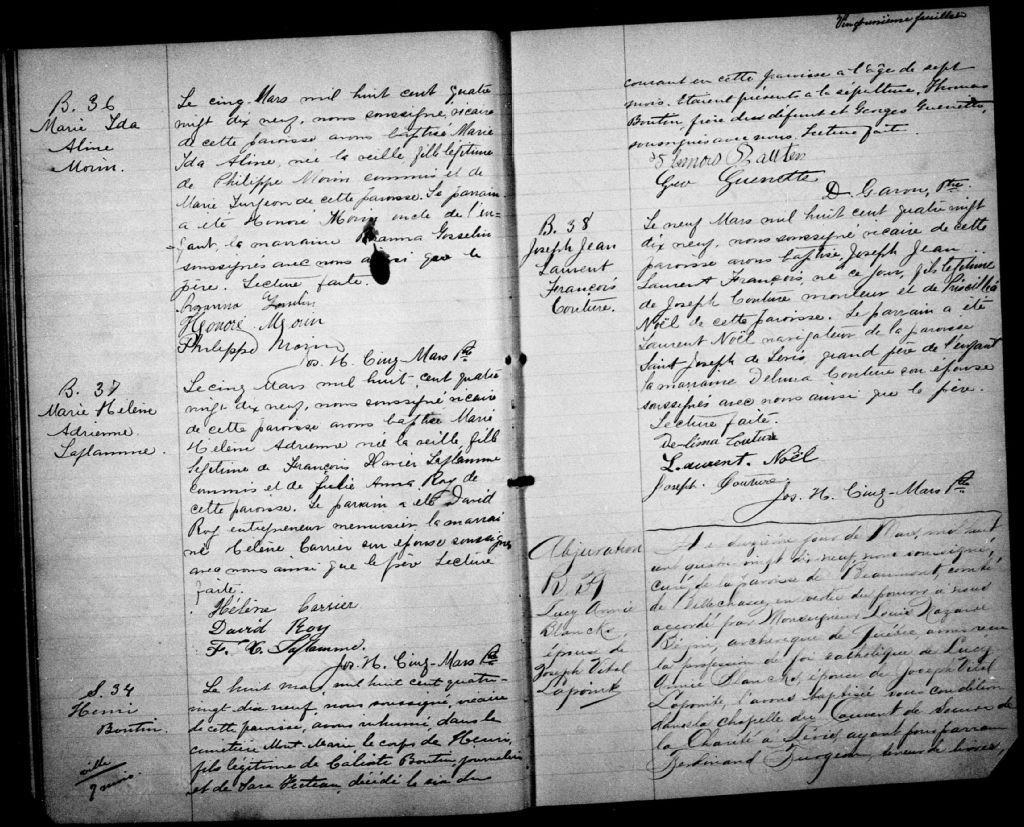 B. 36
Marie Ida
Aline
Morin.
Le cinq Mars mil huit cent quatre
vingt dix neuf, nous soussigné, vicaire
de cette paroisse avons baptisé Marie
Ida Aline, née la veille, fille légitime
de Philippe Morin commis et de
Marie Turgeon de cette paroisse. Le parrain
a été Honoré Morin oncle de l'en-
fant, la marraine Rosanna Gosselin
soussignés avec nous ainsi que le
père. Lecture faite.
Rozanna Gosselin
Honoré Morin
Philippe Morin
Jos. H. Cinq-Mars Ptre
B. 37
Marie Hélène
Adrienne
Laflamme.
Le cinq Mars mil huit cent quatre
vingt dix neuf, nous soussigné vicaire
de cette paroisse avons baptisé Marie
Hélène Adrienne née la veille, fille
légitime de François Xavier Laflamme
commis et de Julie Anna Roy de
cette paroisse. Le parrain a été David
Roy entrepreneur menuisier, la marrai
ne Hélène Carrier son épouse soussignés
avec nous ainsi que le père Lecture
faite.
Hélène Carrier
David Roy
F. X. Laflamme.
Jos. H. Cinq-Mars Ptre
S. 34
Henri
Boutin.
ville
Le huit mars, mil huit cent quatre-
vingt-dix neuf, nous soussigné, vicaire
de cette paroisse, avons inhumé, dans le
cimetière Mont-Marie, le corps de Henri,
fils légitime de Calixte Boutin, journalier
et de Sara Fecteau, décédé le six du
Vingt-unième feuillet
courant en cette paroisse a l'âge de sept
mois. Etaient présents à la sépulture, Thomas
Boutin, frère du défunt et Georges Guenette,
soussignés avec nous. Lecture faite
Geo Guenette
D. Garon, Ptre.
B. 38
Joseph Jean
Laurent
François
Couture.
Le neuf Mars mil huit cent quatre vingt
dix neuf, nous soussigné vicaire de cette
paroisse avons baptisé, Joseph Jean
Laurent François, né ce jour, fils légitime
de Joseph Couture mouleur et de Priscille
Noël de cette paroisse. Le parrain a été
Laurent Noël navigateur de la paroisse
Saint Joseph de Levis, grand père de l'enfant
la marraine Delima Couture son épouse
soussignés avec nous ainsi que le père.
Lecture faite.
Delima Couture
Laurent. Noël
Joseph. Couture
Jos. H. Cinq-Mars Ptre
Abjuration
Lucy Annie
Blanck
épouse de
Joseph Vital
Lapointe
Le deuxième jour de Mars, mil huit
cent quatre vingt dix neuf, nous soussigné,
curé de la paroisse de Beaumont, comté
de Bellechasse, en vertu du pouvoir a nous
accordé par Monseigneur Louis Nazaire
Bégin, archevêque de Québec, avons reçu
la profession de foi catholique de Lucy
Annie Blanck, épouse de Joseph Vital
Lapointe, l'avons baptisé sous condition
dans la chapelle du Couvent de soeurs de
la Charité à Lévis, ayant pour parrain
Ferdinand Turgeon, teneur de livres,